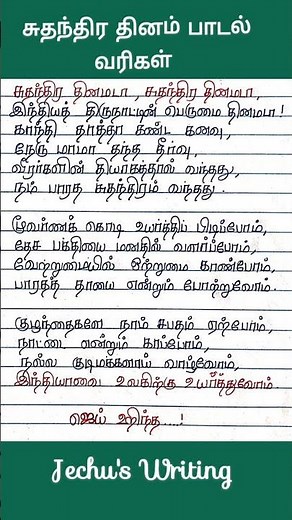 சுதந்திர தினம் பாடல்
வரிகள்
சுதந்திர தினமடா, சுதந்திர தினமடா,
இந்தியத் திருநாட்டின் பெருமை தினமடா!
காந்தி தாத்தா கண்ட கனவு,
நேரு மாமா தந்த தீர்வு,
வீரர்களின் தியாகத்தால் வந்தது,
நம் பாரத சுதந்திரம் வந்தது.
மூவர்ணக் கொடி உயர்த்திப் பிடிப்போம்,
தேச பக்தியை மனதில் வளர்ப்போம்,
வேற்றுமையில் ஒற்றுமை காண்போம்,
பாரதத் தாயை என்றும் போற்றுவோம்.
குழந்தைகளே நாம் சபதம் ஏற்போம்,
நாட்டை என்றும் காப்போம்,
நல்ல குடிமக்களாய் வாழ்வோம்,
இந்தியாவை உலகிற்கு உயர்த்துவோம்.
ஜெய் ஹிந்த்....!
Jechu's Writing